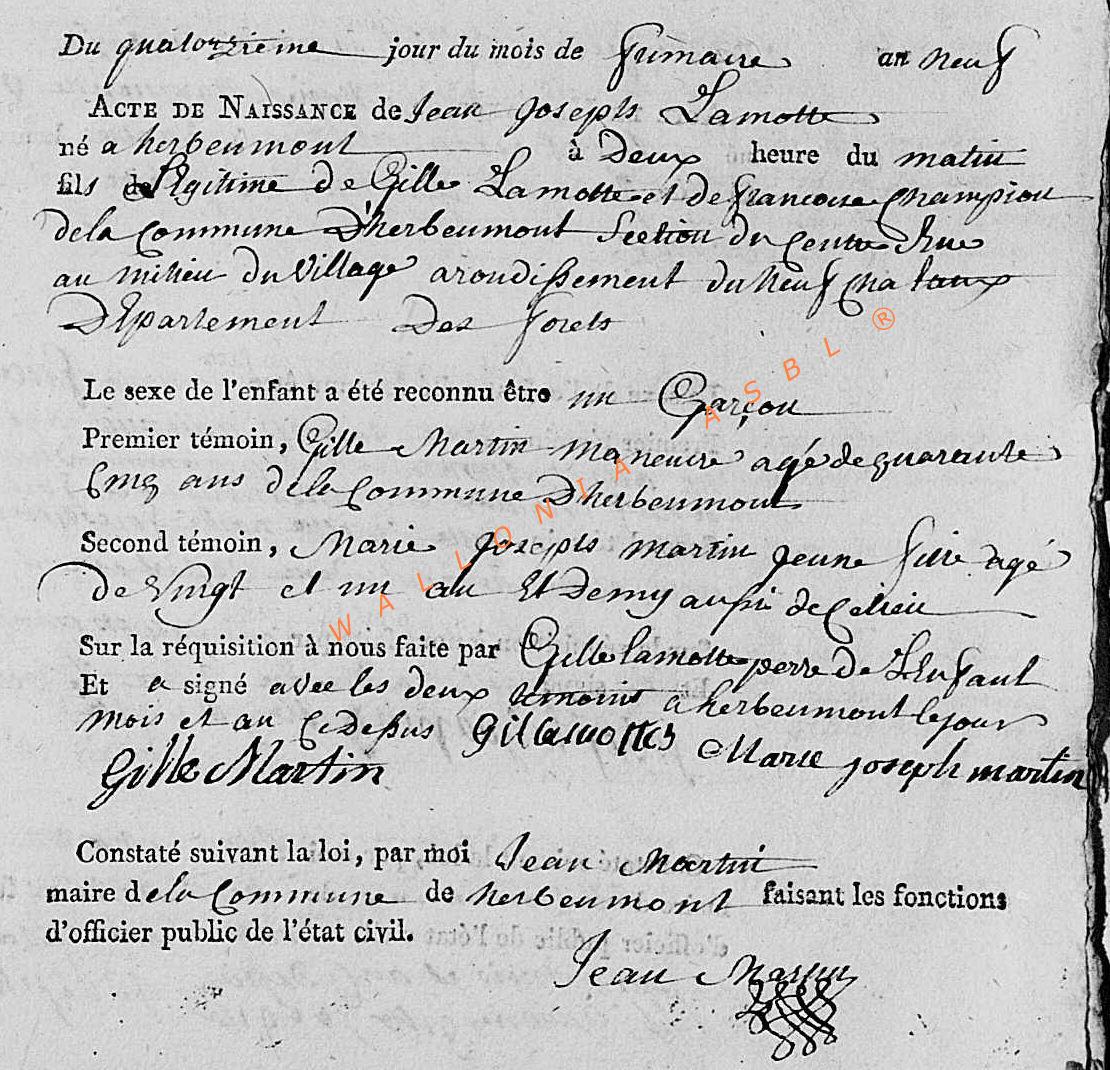 Du quatorzieme jour du mois de frimaire an neuf
ACTE DE NAISSANCE de Jean Joseph Lamotte
né a herbeumont à Deux heure du matin
fils de Legitime de Gille Lamotte et de francoise Champion
dela Commune D'herbeumont Section du Centre Rue
au milieu du village aroudissement du Neufchataux
Département des forets
Le sexe de l'enfant a été reconnu être un Garçon
Premier témoin, Gille Martin maneuvre agé de quarante
Cinq ans dela Commune D'herbeumont
Second témoin, Marie Joseph martin Jeune fille agé
de vingt et un an Et Demy aussi de Celieu
Sur la réquisition à nous faite par Gille lamotte perre de Lenfant
Et a signé avec les deux temoins a herbeumont le jour
mois et an Cidessus Gil Lamottes Marie joseph martin
Gille Martin
Constaté suivant la loi, par moi Jean Martin
maire dela Commune de herbeumont faisant les fonctions
d'officier public de l'état civil.
Jean Martin
WALLONIA ASBL ®